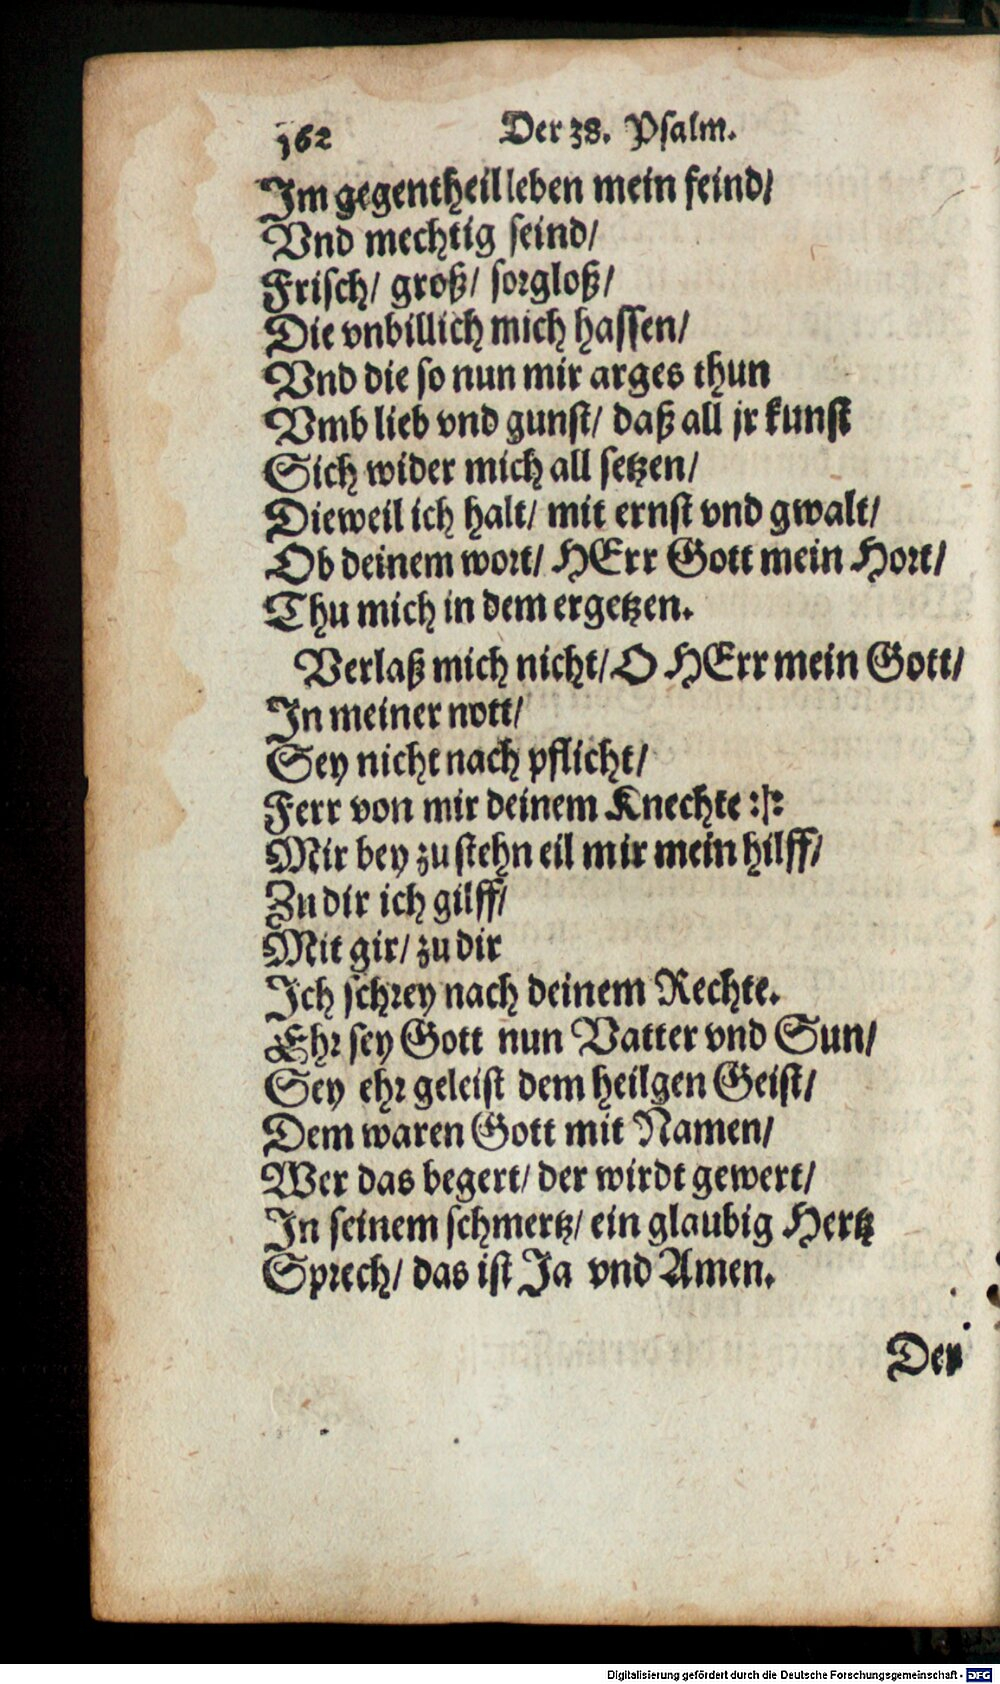 162 Der 38. Psalm.
Im gegentheil leben mein feind/
Vnd mechtig seind/
Frisch/ groß/ sorgloß/
Die vnbillich mich hassen/
Vnd die so nun mir arges thun
Vmb lieb vnd gunst/ daß all jr kunst
Sich wider mich all setzen/
Dieweil ich halt/ mit ernst vnd gwalt/
Ob deinem wort/ HErr Gott mein Hort/
Thu mich in dem ergetzen.
Verlaß mich nicht/ O HErr mein Gott/
In meiner nott/
Sey nicht nach pflicht/
Ferr von mir deinem Knechte :|:
Mir bey zu stehn eil mir mein hilff/
Zu dir ich gilff/
Mit gir/ zu dir
Ich schrey nach deinem Rechte.
Ehr sey Gott nun Vatter vnd Sun/
Sey ehr geleist dem heilgen Geist/
Dem waren Gott mit Namen/
Wer das begert/ der wirdt gewert/
In seinem schmertz/ ein glaubig Hertz
Sprech/ das ist Ja vnd Amen.
Der
Digitalisierung gefördert durch die Deutsche Forschungsgemeinschaft - DFG